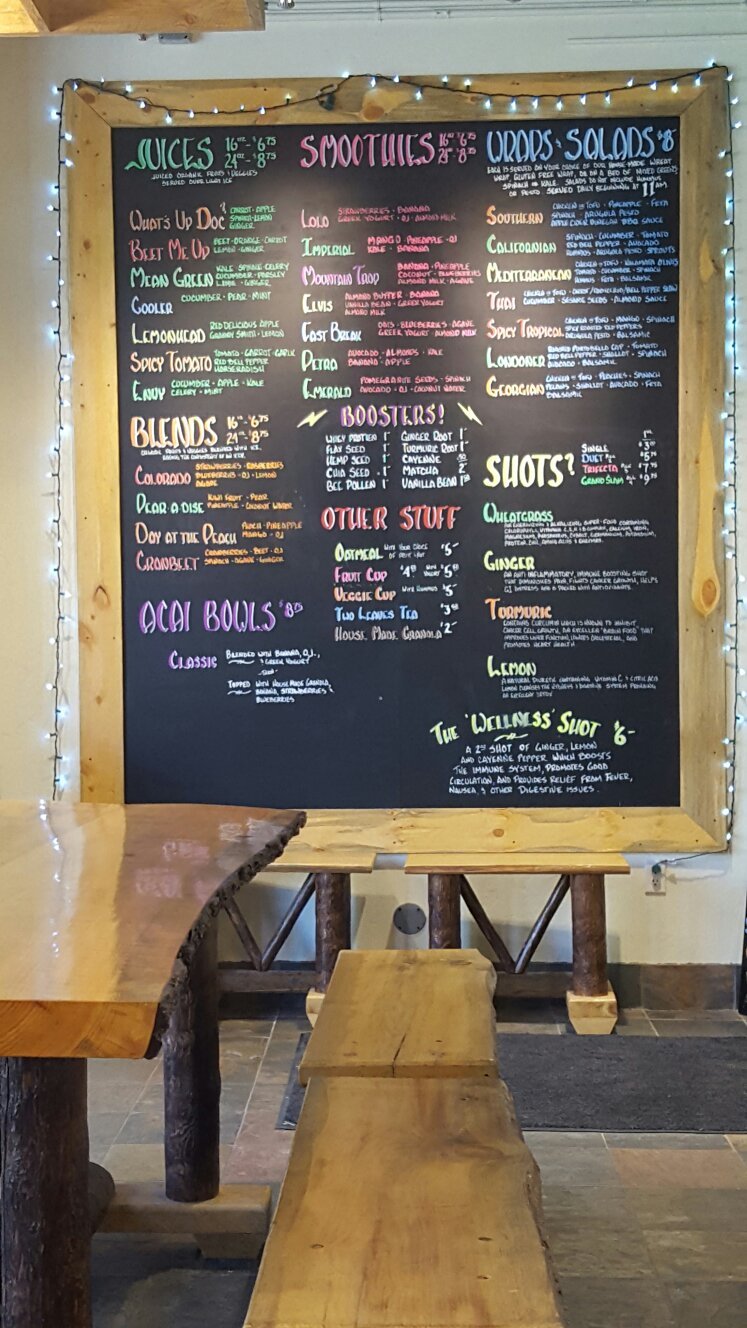 JUICES 16oz - $6.75
24oz - $8.75
JUICED ORGANIC FRUITS & VEGGIES
SERVED OVER ICE
WHAT'S UP DOC? CARROT · APPLE
SPINACH · LEMON
GINGER
BEET ME UP BEET · ORANGE · CARROT
LEMON · GINGER
MEAN GREEN KALE · SPINACH · CELERY
CUCUMBER · PARSLEY
LEMON · GINGER
COOLER CUCUMBER · PEAR · MINT
LEMONHEAD RED DELICIOUS APPLE
GRANNY SMITH · LEMON
SPICY TOMATO TOMATO · CARROT · GARLIC
RED BELL PEPPER
HORSERADISH
ENVY CUCUMBER · APPLE · KALE
CELERY · MINT
BLENDS 16oz - $6.75
24oz - $8.75
ORGANIC FRUITS & VEGGIES BLENDED WITH ICE,
COLORADO STRAWBERRIES · RASPBERRIES
BLUEBERRIES · OJ · LEMON
AGAVE
PEAR-A-DISE KIWI FRUIT · PEAR
PINEAPPLE · COCONUT WATER
DAY AT THE PEACH PEACH · PINEAPPLE
MANGO · OJ
CRANBEET CRANBERRIES · BEET · OJ
SPINACH · AGAVE · GINGER
ACAI BOWLS $8.75
CLASSIC BLENDED WITH BANANA, O.J.,
& GREEK YOGURT
TOPPED WITH HOUSE MADE GRANOLA,
BANANA, STRAWBERRIES &
BLUEBERRIES
SMOOTHIES 16oz $6.75
24oz $8.75
LOLO STRAWBERRIES · BANANA
GREEK YOGURT · OJ · ALMOND MILK
IMPERIAL MANGO · PINEAPPLE · OJ
KALE · BANANA
MOUNTAIN TROP BANANA · PINEAPPLE
COCONUT · BLUEBERRIES
ALMOND MILK · AGAVE
ELVIS ALMOND BUTTER · BANANA
VANILLA BEAN · GREEK YOGURT
ALMOND MILK
FAST BREAK OATS · BLUEBERRIES · AGAVE
GREEK YOGURT · ALMOND MILK
PETRA AVOCADO · ALMONDS · KALE
BANANA · APPLE
EMERALD POMEGRANATE SEEDS · SPINACH
AVOCADO · OJ · COCONUT WATER
BOOSTERS!
WHEY PROTEIN 1- GINGER ROOT 1-
FLAX SEED 1- TURMERIC ROOT 1-
HEMP SEED 1- CAYENNE .50
CHIA SEED 1- MATCHA 2-
BEE POLLEN 1- VANILLA BEAN
OTHER STUFF
OATMEAL WITH YOUR CHOICE OF FRUIT + NUT $5-
FRUIT CUP WITH YOGURT
VEGGIE CUP WITH HUMMUS $5-
TWO LEAVES TEA
HOUSE MADE GRANOLA $2-
WRAPS & SALADS $8-
EACH IS SERVED ON YOUR CHOICE OF OUR HOUSE-MADE WHEAT
WRAP, GLUTEN FREE WRAP, OR ON A BED OF MIXED GREENS,
SPINACH OR KALE. SALADS DO NOT INCLUDE HUMMUS
OR PESTO. SERVED DAILY BEGINNING AT 11AM
SOUTHERN CHICKEN OR TOFU · PINEAPPLE · FETA
SPINACH · ARUGULA PESTO
APPLE CIDER VINEGAR BBQ SAUCE
CALIFORNIAN SPINACH · CUCUMBER · TOMATO
RED BELL PEPPER · AVOCADO
HUMMUS · ARUGULA PESTO · SPROUTS
MEDITERRANEAN CHICKEN OR TOFU · KALAMATA OLIVES
TOMATO · CUCUMBER · SPINACH
HUMMUS · FETA · BALSAMIC
THAI CHICKEN OR TOFU
CUCUMBER · SESAME SEEDS · ALMOND SAUCE
SPICY TROPICAL CHICKEN OR TOFU · MANGO · SPINACH
ARUGULA PESTO · BALSAMIC
LONDONER ROASTED PORTOBELLO CAP · TOMATO
RED BELL PEPPER · SHALLOT · SPINACH
AVOCADO · BALSAMIC
GEORGIAN CHICKEN OR TOFU · PEACHES · SPINACH
PECANS · SHALLOT · AVOCADO · FETA
BALSAMIC
SHOTS? 1oz
SINGLE $3.00
DUET
TRIFECTA $7.75
GRAND SLAM
WHEATGRASS
AN ENERGIZING & ALKALIZING SUPER-FOOD CONTAINING
GINGER
AN ANTI INFLAMMATORY, IMMUNE BOOSTING SHOT
THAT DIMINISHES PAIN, FIGHTS CANCER GROWTH, HELPS
G.I. DISTRESS AND IS PACKED WITH ANTIOXIDANTS.
TURMERIC
CONTAINS CURCUMIN WHICH IS KNOWN TO INHIBIT
CANCER CELL GROWTH, AN EXCELLENT "BRAIN FOOD" THAT
IMPROVES LIVER FUNCTION, LOWERS CHOLESTEROL, AND
PROMOTES HEART HEALTH.
LEMON
A NATURAL DIURETIC CONTAINING VITAMIN C & CITRIC ACID
THE "WELLNESS" SHOT $6-
A 2oz SHOT OF GINGER, LEMON
AND CAYENNE PEPPER WHICH BOOSTS
THE IMMUNE SYSTEM, PROMOTES GOOD
CIRCULATION, AND PROVIDES RELIEF FROM FEVER,
NAUSEA, & OTHER DIGESTIVE ISSUES.